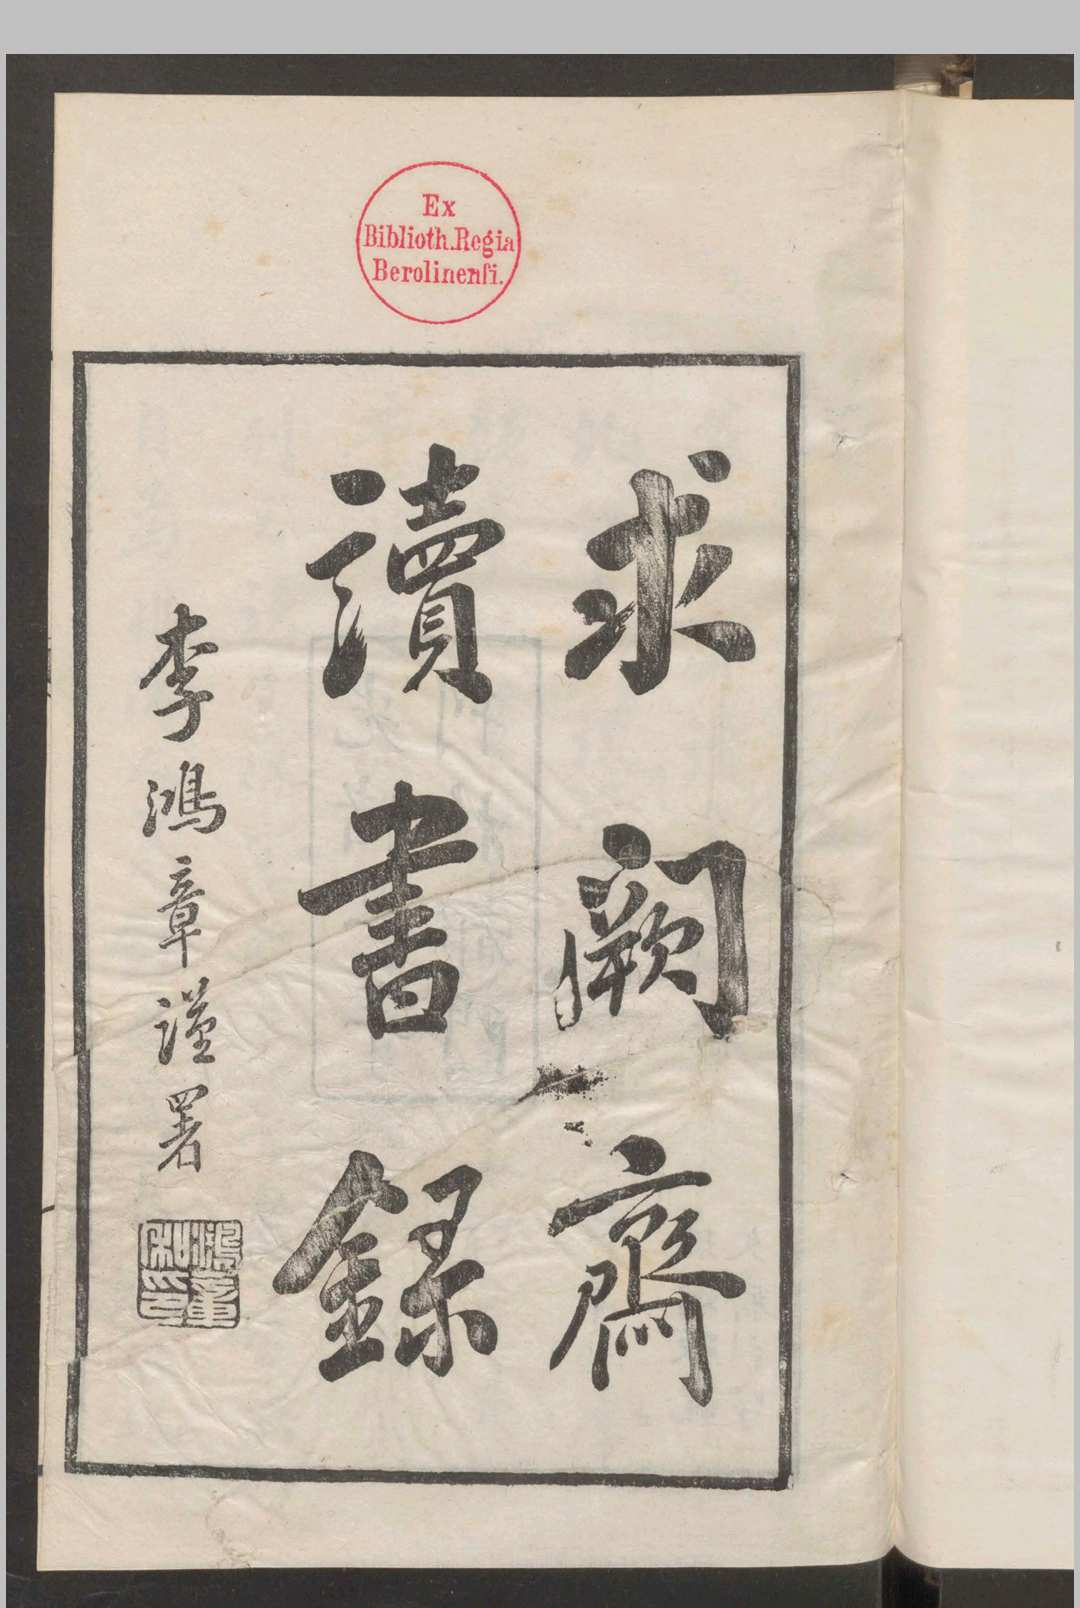 Ex
Biblioth.Regia
Berolinenſi.
求闕齋
讀書錄
李鴻章謹署